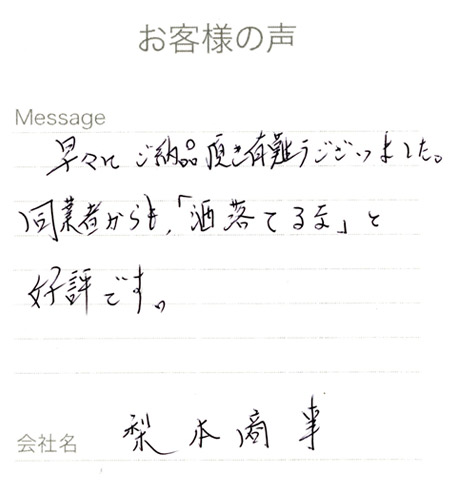 お客様の声
Message
早々にご納品頂き有難うございました。
同業者からも、「洒落てるな」と
好評です。
会社名 梨本商事